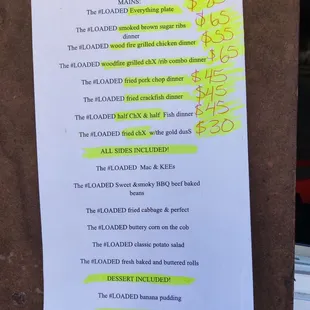 MAINS:
The #LOADED Everything plate
The #LOADED smoked brown sugar ribs $65
dinner
The #LOADED wood fire grilled chicken dinner $55
The #LOADED woodfire grilled chX /rib combo dinner $65
The #LOADED fried pork chop dinner $45
The #LOADED fried crackfish dinner $45
The #LOADED half ChX & half Fish dinner $45
The #LOADED fried chX w/the gold dusS $30
ALL SIDES INCLUDED!
The #LOADED Mac & KEEs
The #LOADED Sweet &smoky BBQ beef baked
beans
The #LOADED fried cabbage & perfect
The #LOADED buttery corn on the cob
The #LOADED classic potato salad
The #LOADED fresh baked and buttered rolls
DESSERT INCLUDED!
The #LOADED banana pudding